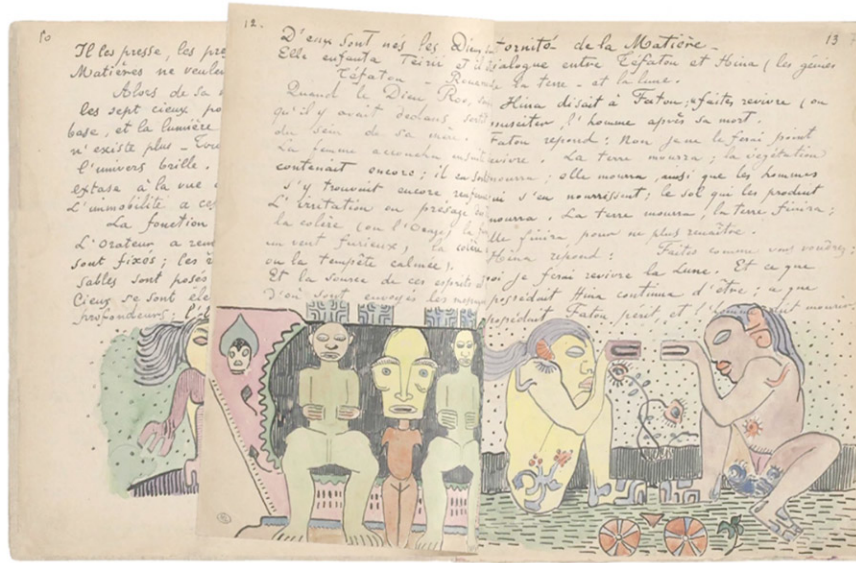 10
Il les presse, les pre
Matières ne veulen
Alors de sa
les sept cieux po
base, et la lumière
n'existe plus - Tou
l'univers brille.
extase à la vue
L'immobilité a ces
La fonction
L'Orateur a rem
sont fixés; les r
sables sont posés
Cieux se sont éle
profondeurs;
12.
D'eux sont nés les Dieu
Elle enfanta Téirii et il
Téfatou - Roue
Quand le Dieu Roo,
qu'il y avait dedans sorti
du sein de sa mère.
La femme accoucha ensuite
contenait encore; il en sor
s'y trouvait encore renfer
L'irritation ou présage
la colère (ou l'Orage) le
un vent furieux, la colère
ou la tempête calmée).
Et la source de ces esprits
D'où sont envoyés les
13
ternité de la Matière -
Dialogue entre Téfatou et Hina (les génies
la terre - et la lune.
Hina disait à Fatou: faites revivre (ou
ressusciter, l'homme après sa mort.
Fatou repond: Non je ne le ferai point
revivre. La terre mourra; la végétation
mourra; elle mourra, ainsi que les hommes
qui s'en nourrissent; le sol qui les produit
mourra. La terre mourra, la terre finira;
elle finira pour ne plus renaître.
Hina répond: Faites comme vous voudrez;
moi je ferai revivre la Lune. Et ce que
possédait Hina continua d'être; ce que
possédait Fatou périt, et l'homme dut mourir.